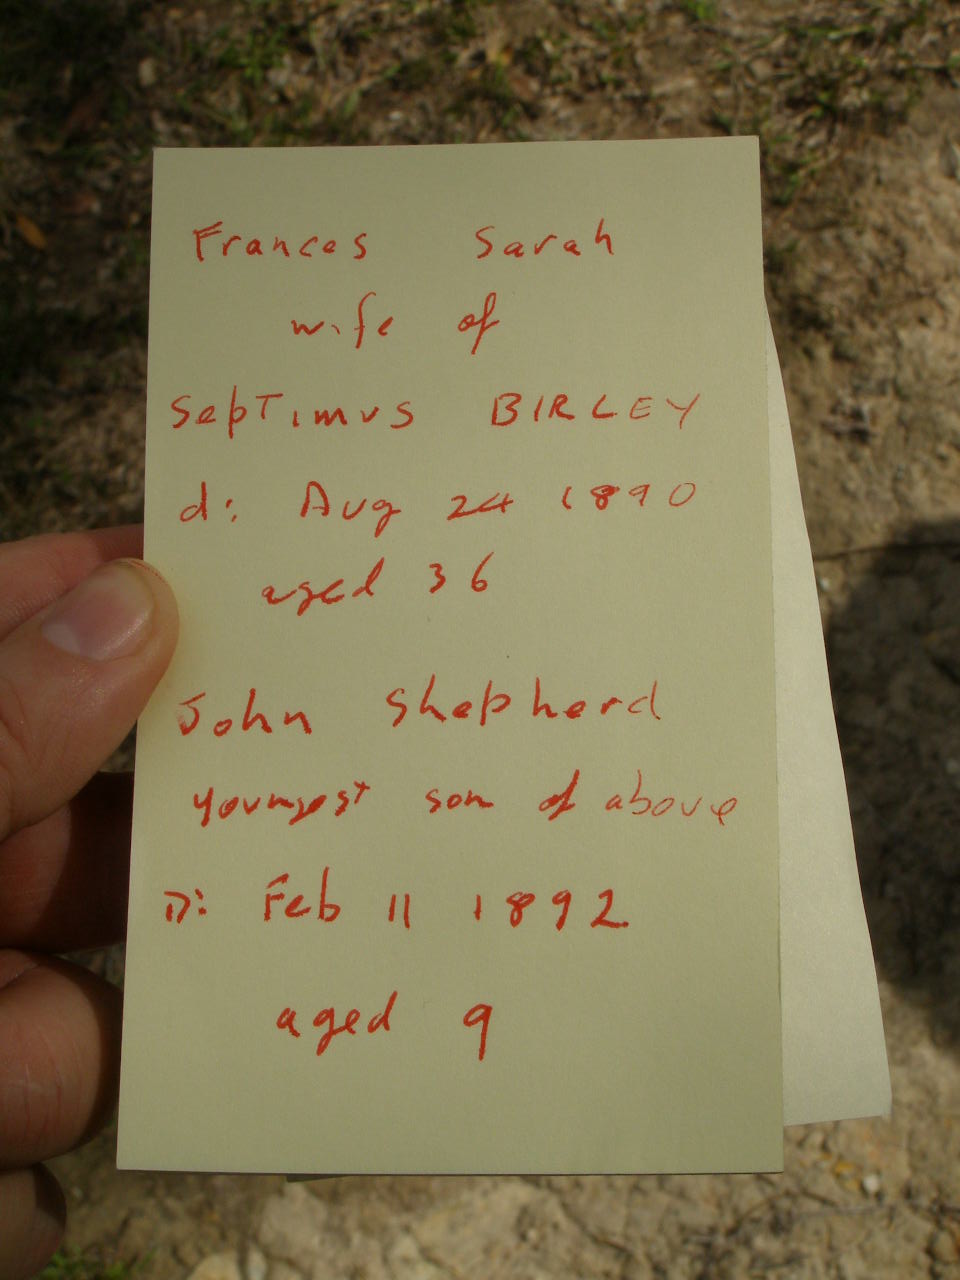 Frances Sarah
wife of
Septimus BIRLEY
d: Aug 24 1890
aged 36
John Shepherd
youngest son of above
D: Feb 11 1892
aged 9